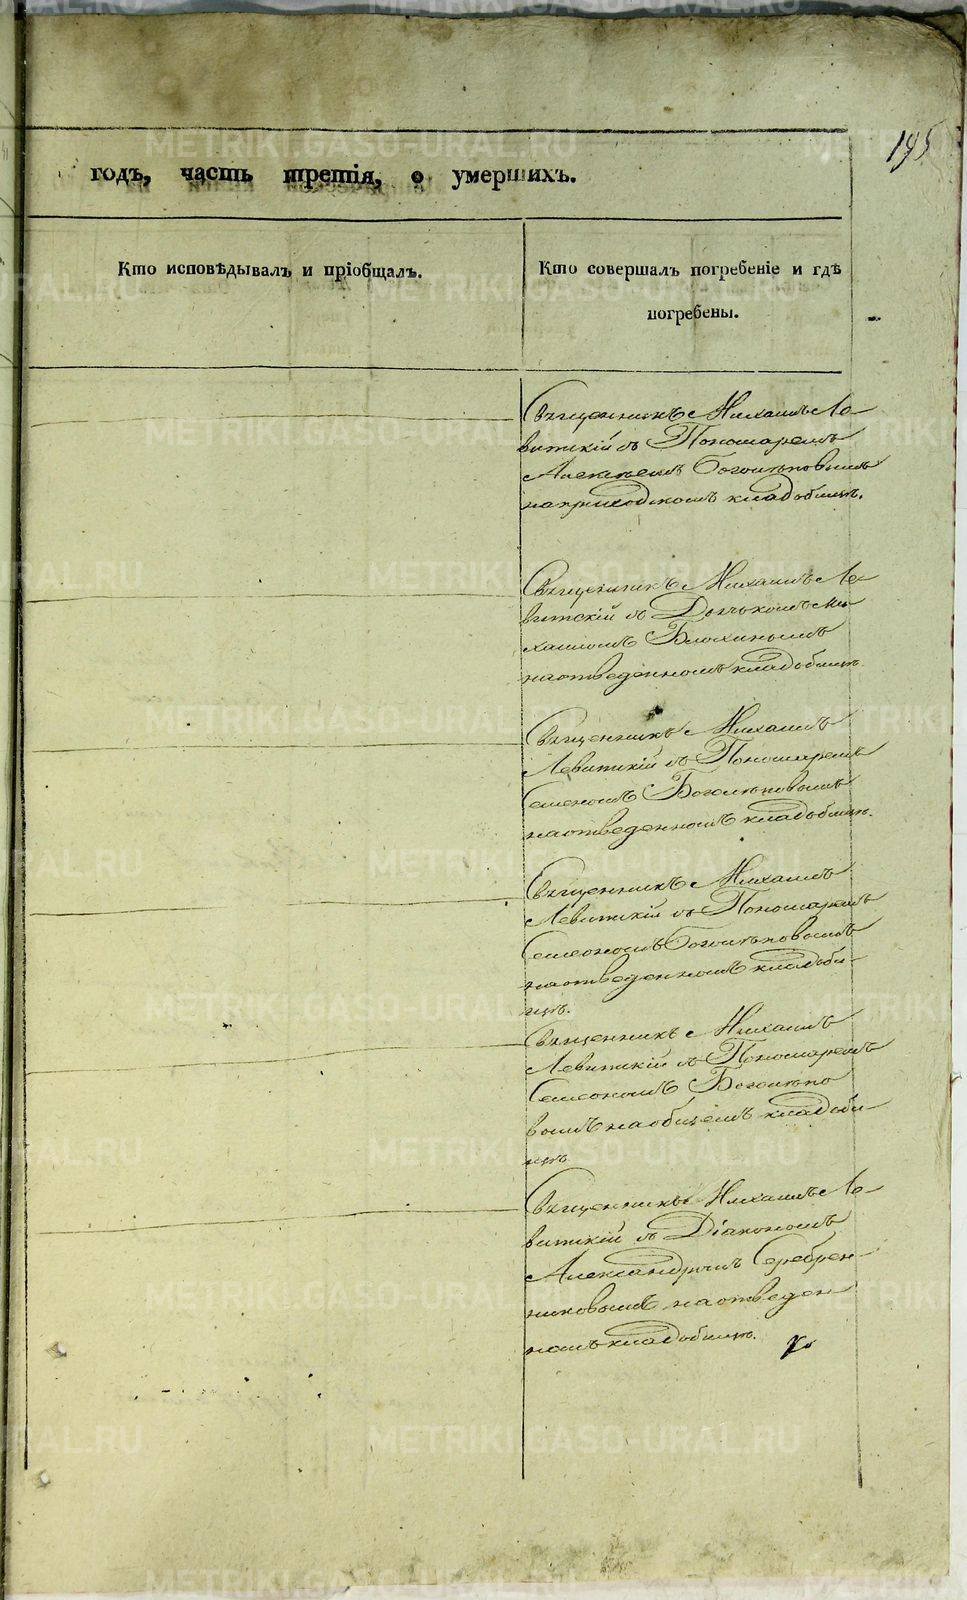 195
годъ, часть третія, о умершихъ.
Кто исповѣдывалъ и пріобщалъ.
Кто совершалъ погребеніе и гдѣ
погребены.
Священникъ Михаилъ Ле-
витскій съ Пономаремъ
Алексѣемъ Боголѣповымъ
на приходскомъ кладбищѣ.
Священникъ Михаилъ Ле-
витскій съ Дьячкомъ Ми-
хаиломъ Блохинымъ
на отведенномъ кладбищѣ
Священникъ Михаилъ
Левитскій съ Пономаремъ
Семеномъ Боголѣповымъ
на отведенномъ кладбищѣ.
Священникъ Михаилъ
Левитскій съ Пономаремъ
Семеономъ Боголѣповымъ
на отведенномъ кладби-
щѣ.
Священникъ Михаилъ
Левитскій съ Пономаремъ
Семеономъ Боголѣпо
вымъ на общемъ кладби-
щѣ
Священникъ Михаилъ Ле-
витскій съ Діакономъ
Александромъ Серебрен-
никовымъ на отведен
номъ кладбищѣ.
METRIKI.GASO-URAL.RU